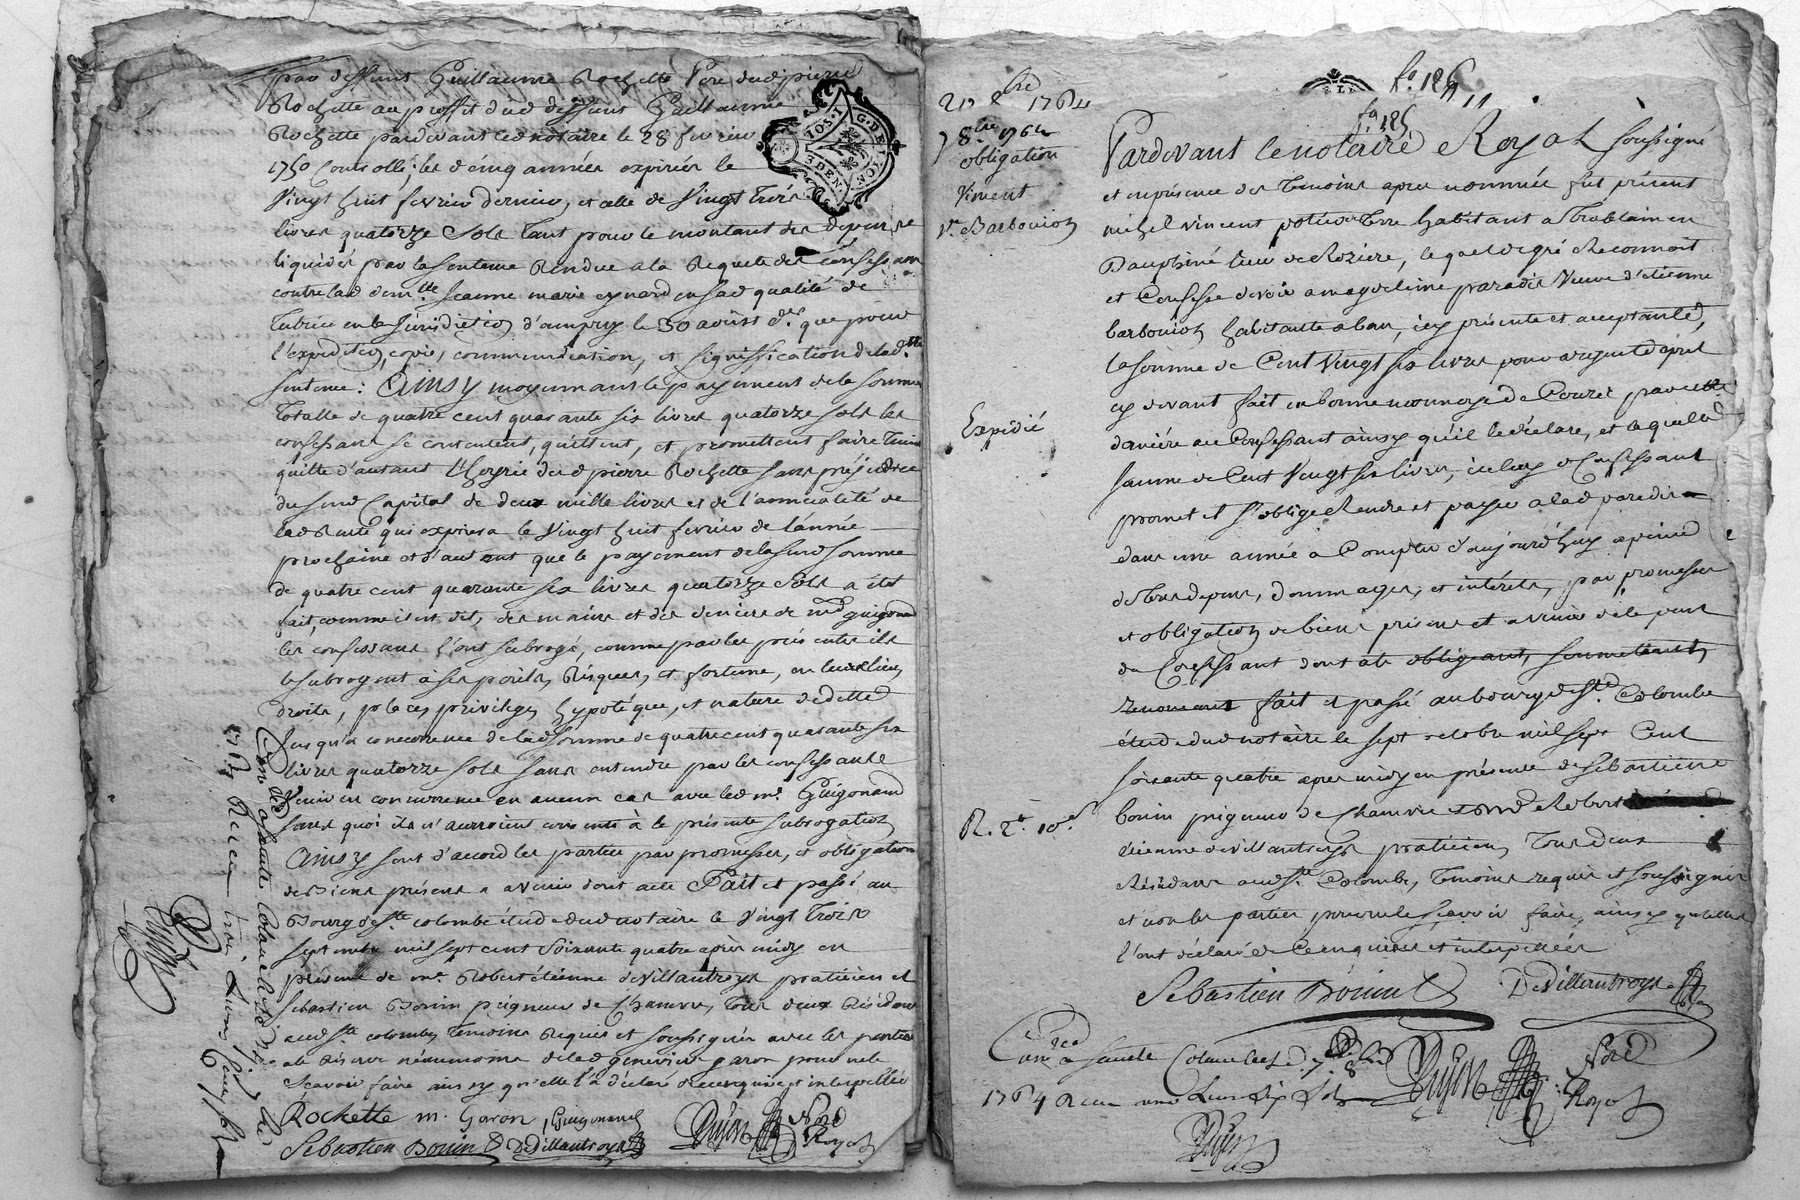 par deffunt Guillaume Rochette Pere dud pierre
Rochette au proffit dud deffunt Guillaume
Rochette pardevant led notaire le 28 fevrier
1750 Controllé; les d cinq années expirées le
Vingt huit fevrier dernier, et celle de Vingt Trois
livres quatorze Sols Tant pour le montant des depens
liquidés par la sentence Rendue a la Requete des confessans
contre lad dem.lle Jeanne marie eynard en sad qualité de
Tutrice en la Jurisdiction d'ampuy le 30 août d.er que pour
l'expedition, copie, communication, et signiffication de lad.tte
sentence: Ainsy moyennant le payement de la somme
Totalle de quatre cent quarante six livres quatorze sols les
confessans se contentent, quittent, et promettent faire Tenir
quitte d'autant l'hoyrie dud pierre Rochette sans préjudice
du surd Capital de deux mille livres et de l'annualité de
lad Rente qui expirera le Vingt huit fevrier de l'année
prochaine et d'autant que le payement de la surd somme
de quatre cent quarante six livres quatorze sols a été
fait, comme il est dit, des mains et des deniers de md guigonand
les confessans l'ont subrogé, comme par les présentes ils
le subrogent à ses perils, Risques, et fortune, en leurs lieu,
droits, places privileges hypotéques, et nature de dette
Jusqu'a concurrence de lad somme de quatre cent quarante six
livres quatorze sols sans entendre par les confessans
Venir en concurrence en aucun cas avec led m.r Guigonand
sans quoi ils n'auroient consenti à la présente subrogation
Ainsy sont d'accord les parties par promesses, et obligation
de Biens présens a avenir dont acte Fait et passé au
Bourg de S.te colombe étude dud notaire le Vingt Trois
septembre mil sept cent soixante quatre après midy en
présence de m.e Robert étienne devillantroys praticien et
sebastien Bonin peigneur de Chanvre, Tous deux Résidans
aud S.te colombe Temoins Requis et soussignés avec les parties
de lad genevieve garon pour ne le
scavoir faire ainsy qu'elle l'a déclaré de ce enquise et interpellée
Rochette m. Garon, Guigonand
Sebastien Bonin Devillantroys Dujon Nore Royal
Con.lé a sainte Colombe le
Receu trois Livres
G. DE LYON
DEN.
21 8bre 1764
7 8bre 1764
obligation
Vincent
V.e Barbouion
Expedié
R. 2.e 10.s
f.o 186
fo 185
Pardevant le notaire Royal soussigné
et en présence des Temoins apres nommés fut présent
michel vincent potier de Terre habitant a Roblain en
Dauphiné lieu de Roziere, lequel de gré Reconnoit
et Confesse devoir a magdelaine paradis Veuve d'étienne
barbouion habitante a lau, icy présente et acceptante,
la somme de Cent Vingt six livres pour argent de prest
cy devant fait en bonne monnoye de Cours par cette
derniere au Confessant ainsy qu'il le déclare, et laquelle
somme de Cent Vingt six livres, icelluy d Confessant
promet et s'oblige Rendre et payer a lad paradis
dans une année a Compter d'aujourd'huy a peine
de tous depens, dommages, et intérets, par promesses
et obligation de biens présens et avenir de la part
du Confessant dont acte obligeant, soumettant,
renoncant fait et passé au bourg de S.te Colombe
étude dud notaire le sept octobre mil sept Cent
soixante quatre apres midy en présence de sébastien
bonin peigneur de chanvre et m.e Robert
étienne devillantroys praticien, Tous deux
Résidans aud S.te Colombe, Temoins requis et soussignés
et non les parties pour ne le scavoir faire, ainsy qu'elles
l'ont déclaré de ce enquises et interpellées
Sebastien Bonin Devillantroys
Con.lé a sainte Colombe le d. 7 8bre
1764 Receu une Livre dix sols Dujon Nore Royal
Dujon